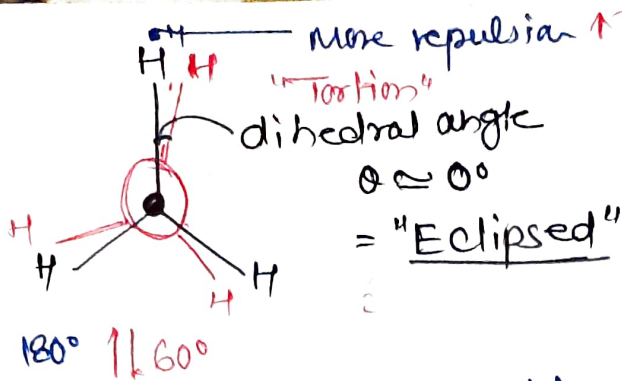 More repulsion ↑
H H
"Tortion"
dihedral angle
θ ≃ 0°
= "Eclipsed"
H
H
H
H
180° ⇅ 60°